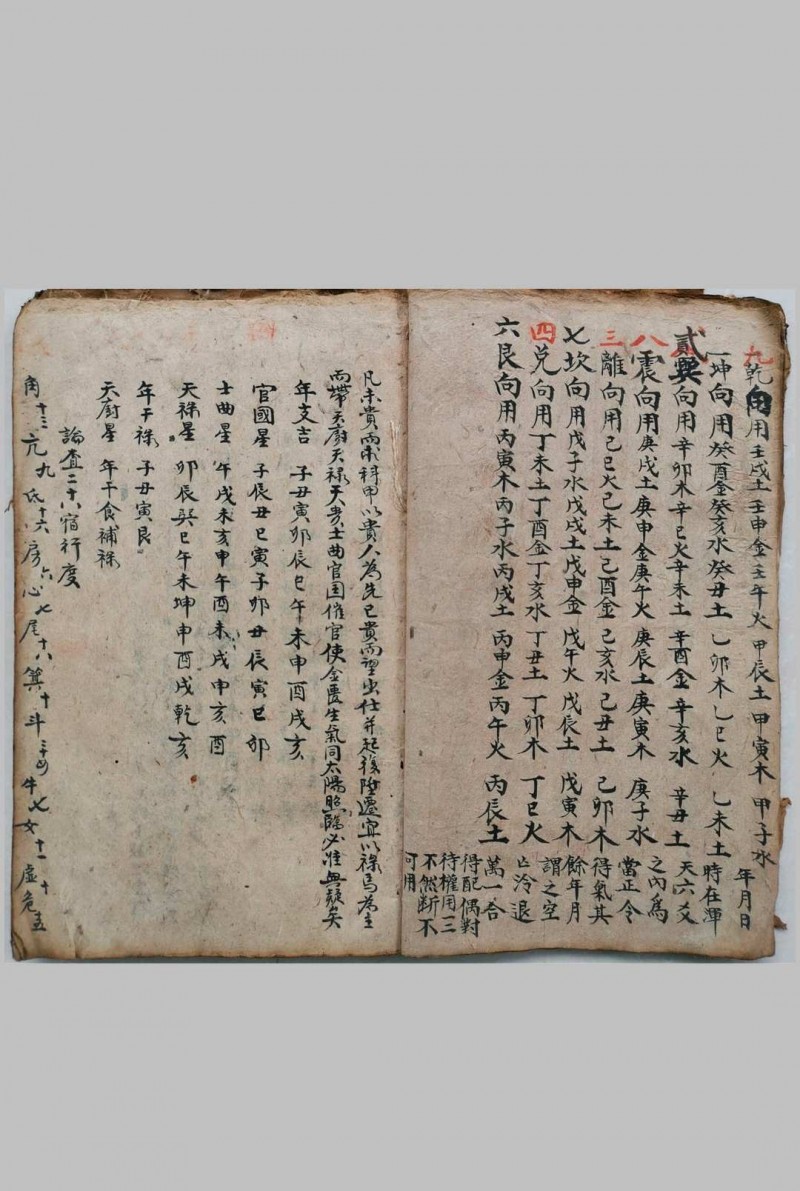 九乾向用壬戌土壬申金壬午火甲辰土甲寅木甲子水
一坤向用癸酉金癸亥水癸丑土乙卯木乙巳火乙未土
貳巽向用辛卯木辛巳火辛未土辛酉金辛亥水辛丑土
八震向用庚戌土庚申金庚午火庚辰土庚寅木庚子水
三離向用己巳火己未土己酉金己亥水己丑土己卯木
七坎向用戊子水戊戌土戊申金戊午火戊辰土戊寅木
四兌向用丁未土丁酉金丁亥水丁丑土丁卯木丁巳火
六艮向用丙寅木丙子水丙戌土丙申金丙午火丙辰土
年月日
時在渾
天六爻
之內為
當正令
得氣其
餘年月
謂之空
亡冷退
萬一合
得配偶對
待權用一三
不然斷不
可用
凡未貴而求科甲以貴人為先已貴而望出仕並起後陞遷宜以祿馬為主
而帶天廚天祿天貴士曲官国催官使金匱生氣同太陽照臨必准無疑矣
年支吉 子丑寅卯辰巳午未申酉戌亥
官國星 子辰丑巳寅子卯丑辰寅巳卯
士曲星 午戌未亥申午酉未戌申亥酉
天祿星 卯辰巽巳午未坤申酉戌乾亥
年干祿 子丑寅艮
天廚星 年干食補祿
論查二十八宿行度
角十三亢九氐十六房六心七尾十八箕十斗牛七女十一虛十危